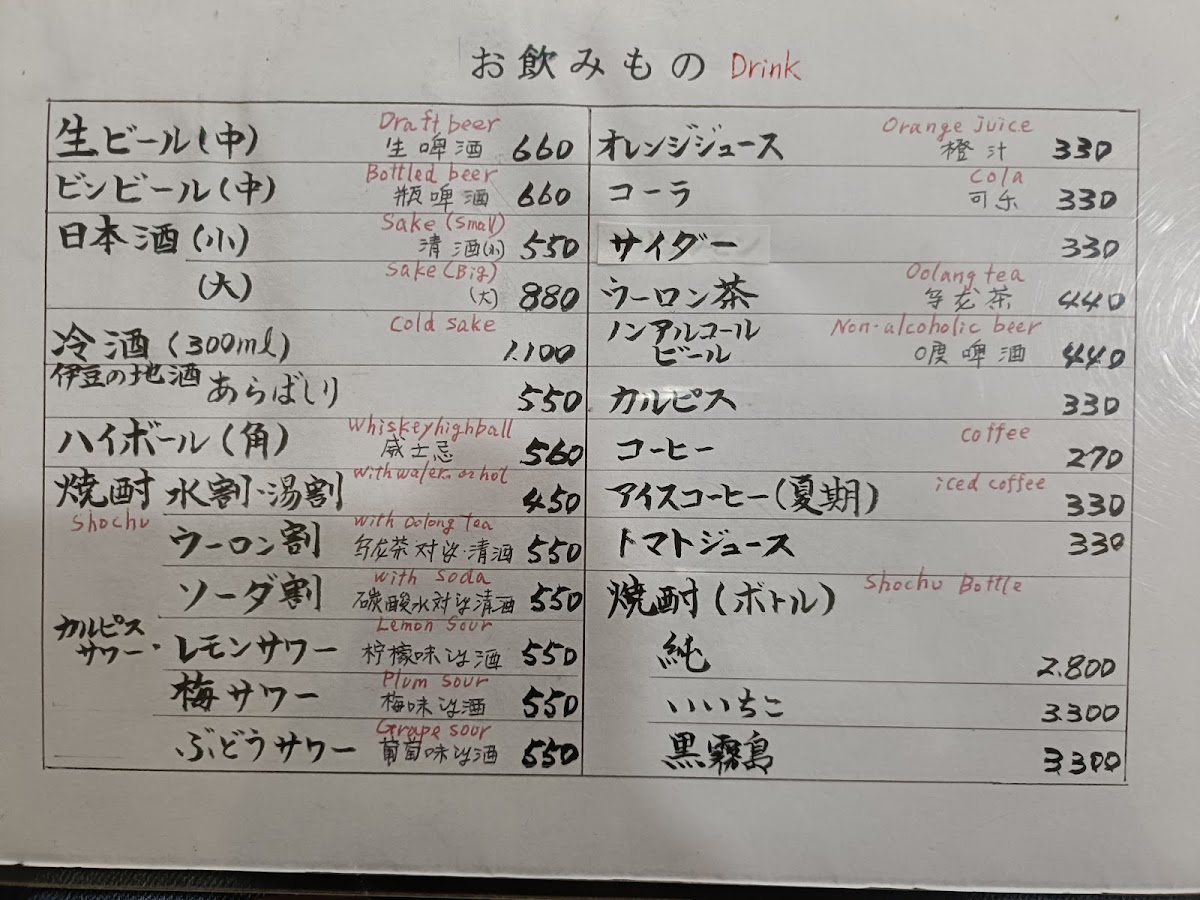 お飲みもの Drink
生ビール(中) Draft beer 生啤酒 660
ビンビール(中) Bottled beer 瓶啤酒 660
日本酒(小) Sake (Small) 清酒(小) 550
(大) Sake (Big) (大) 880
冷酒(300ml) Cold sake 1.100
伊豆の地酒 あらばしり 550
ハイボール(角) Whiskeyhighball 威士忌 560
焼酎 水割・湯割 with water or hot 450
Shochu
ウーロン割 with Oolong tea 乌龙茶对 清酒 550
ソーダ割 with soda 碳酸水对 清酒 550
カルピスサワー・レモンサワー Lemon Sour 柠檬味 酒 550
梅サワー Plum sour 梅味 酒 550
ぶどうサワー Grape sour 葡萄味 酒 550
オレンジジュース Orange juice 橙汁 330
コーラ Cola 可乐 330
サイダー 330
ウーロン茶 Oolang tea 乌龙茶 440
ノンアルコール
ビール Non-alcoholic beer 0度啤酒 440
カルピス 330
コーヒー Coffee 270
アイスコーヒー(夏期) iced coffee 330
トマトジュース 330
焼酎(ボトル) Shochu Bottle
純 2.800
いいちこ 3.300
黒霧島 3.300